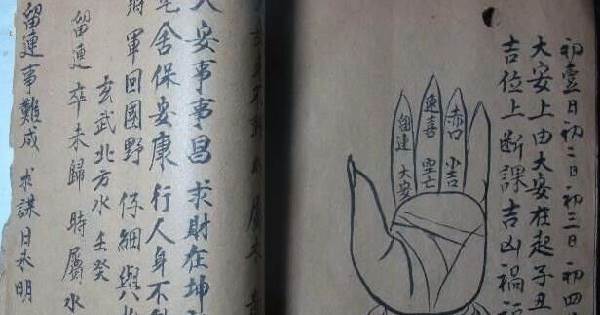 初壹日初二日初三日初四
大安上由大安在起子丑
吉位上断課吉凶禍福
赤口
小吉
速喜
空亡
留連
大安
大安事事昌 求財在坤
宅舍保安康 行人身不
將軍回園野 仔細與
玄武北方水壬癸
留連 卒未歸時屬水
留連事難成 求謀日未明